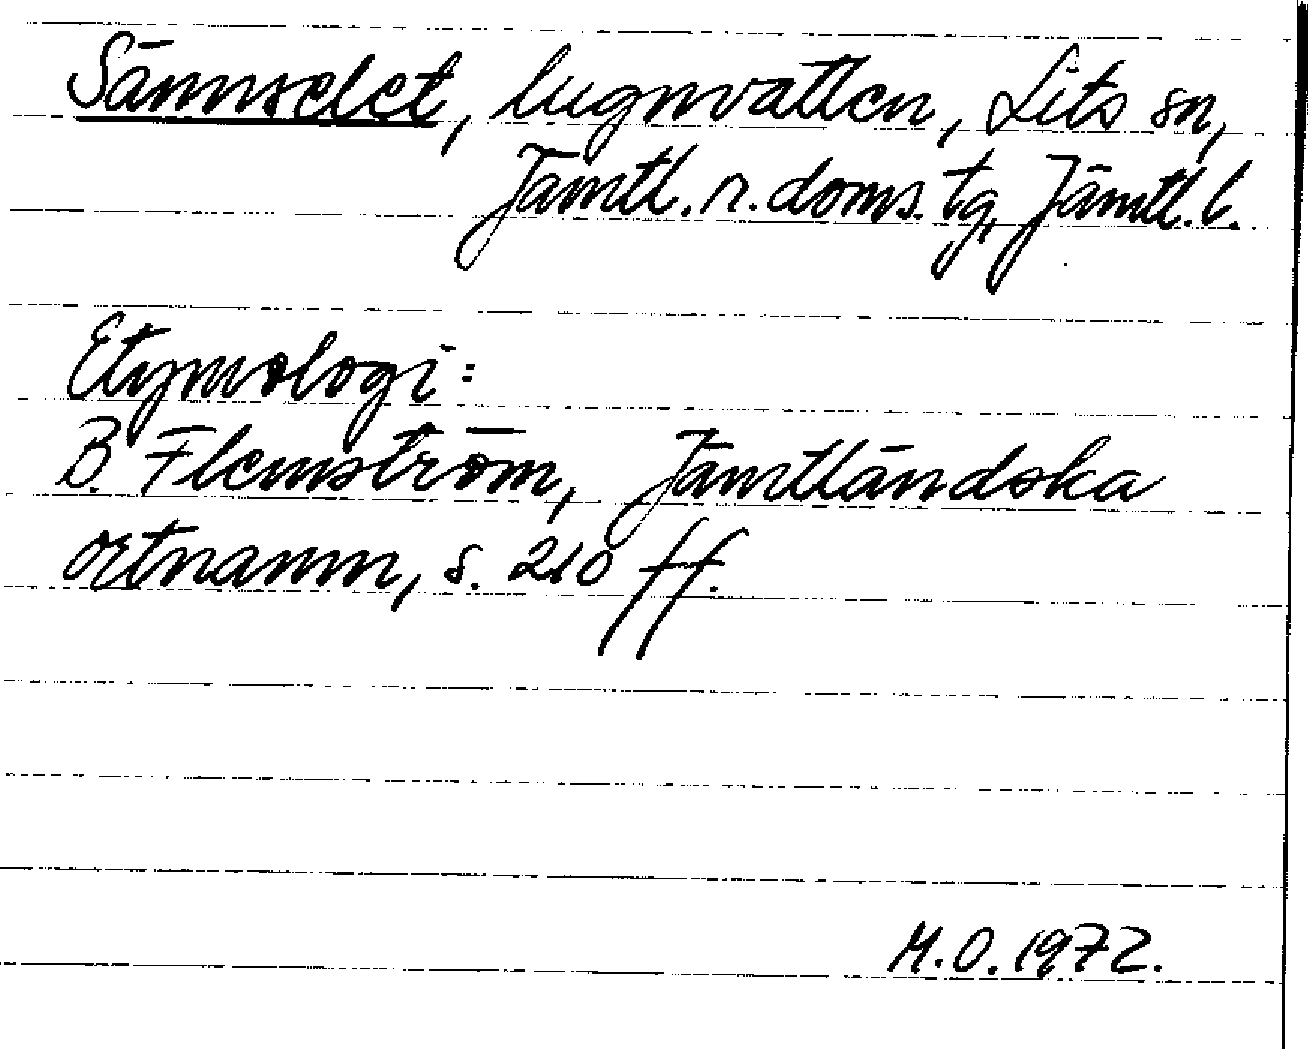 Sännselet, lugnvatten, Lits sn,
Jämtl. n. doms. tg, Jämtl. l.
Etymologi:
B. Flemström, Jämtländska
ortnamn, s. 210 ff.
M.O. 1972.